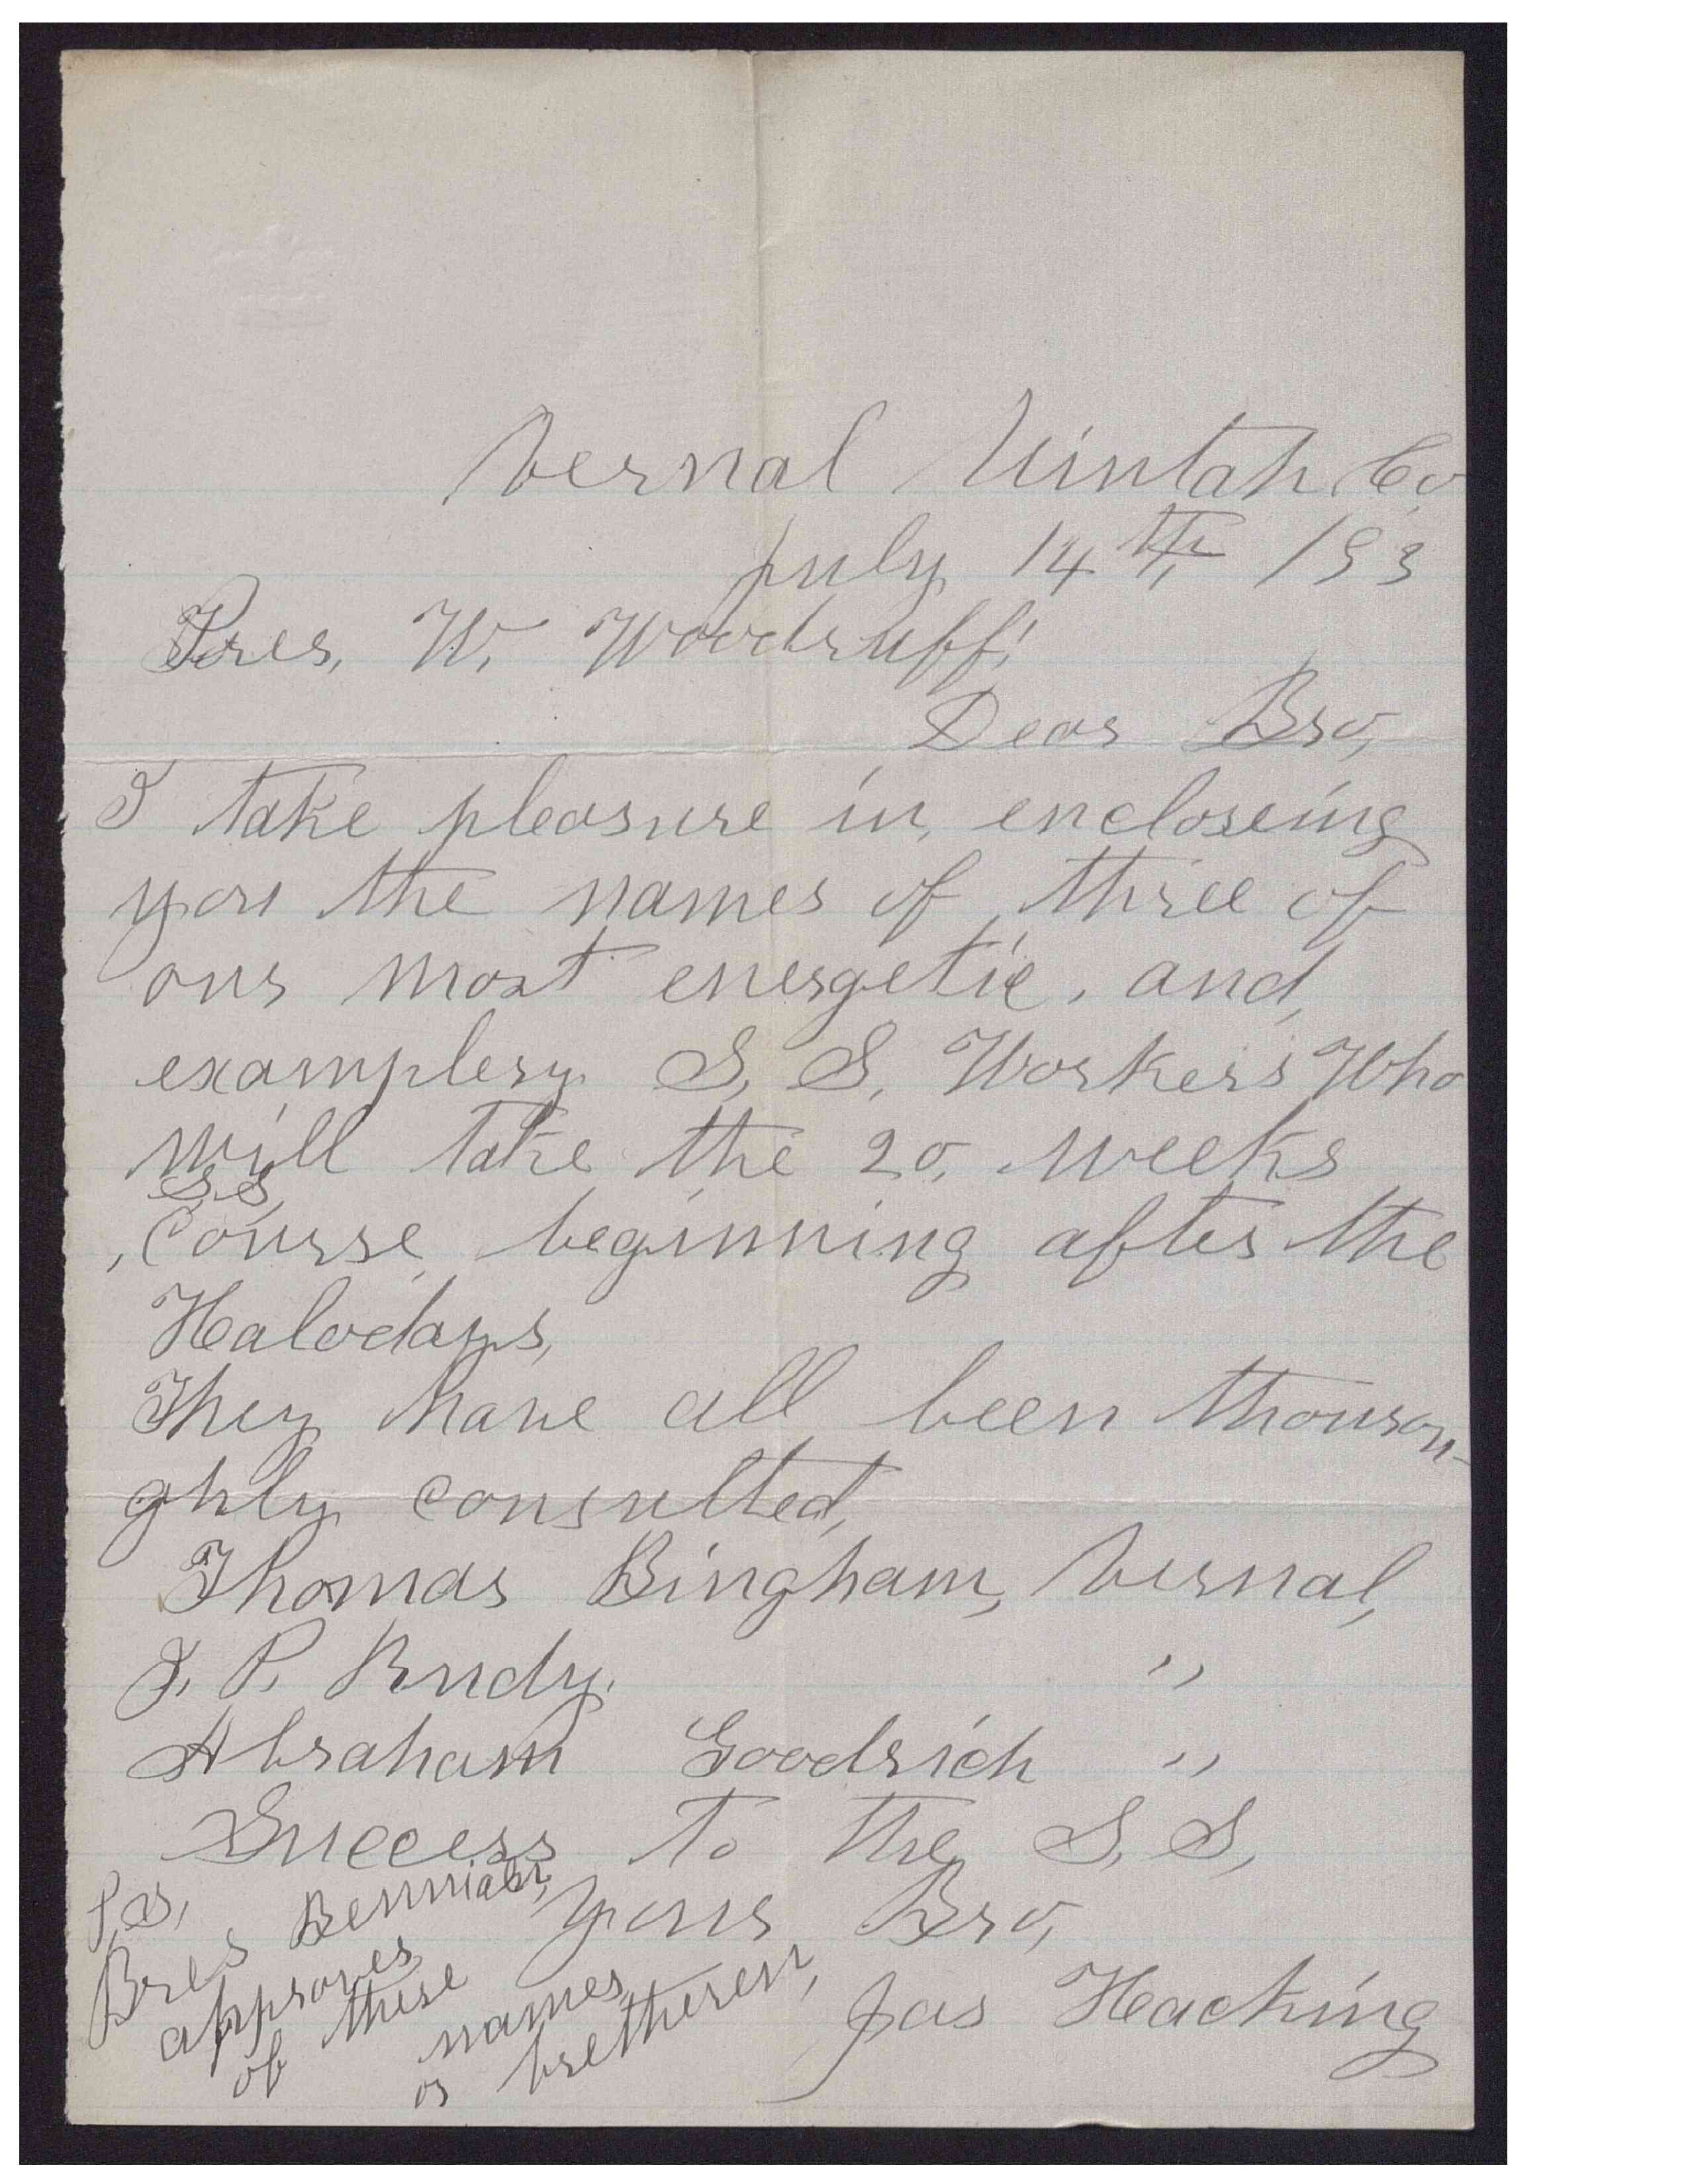 Vernal Uintah Co
July 14th 193
Pres, W, Woodruff!
Dear Bro,
I take pleasure in, encloseing
you the names of three of
our most energetic, and,
examplery S, S, Workers Who
will take the 20, weeks
S S,
, Course beginning after the
Halodays,
They have all been thourou-
ghly consulted,
Thomas Bingham, Vernal,
J. P. Rudy. "
Abraham Goodrich "
Success to the S, S,
Your Bro,
Jas Hacking
P,S,
Pres Bennion,
approves
of these
names
or bretheren,